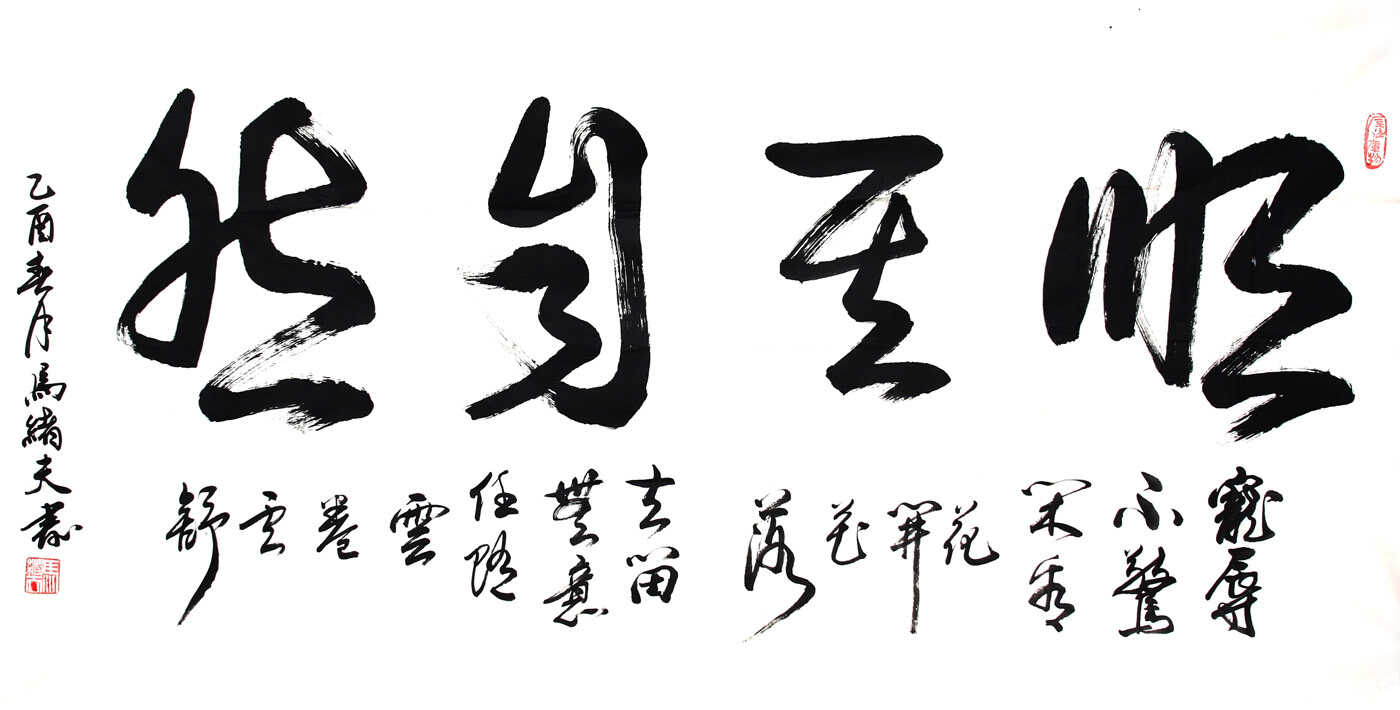 順其自然
寵辱
不驚
閑看
花
開
花
落
去留
無意
任隨
雲
卷
雲
舒
乙酉春月馬緒夫書